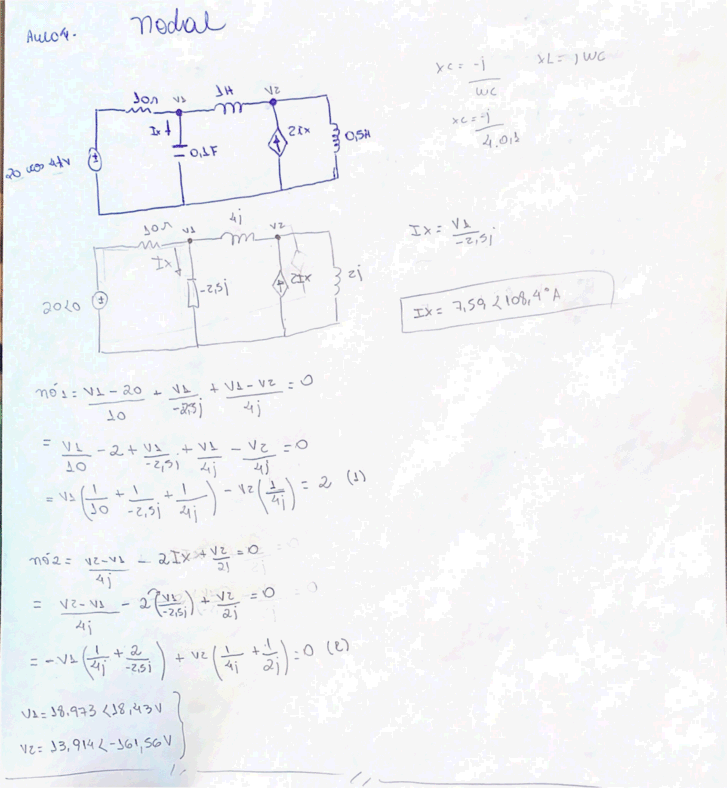 Aula 4. Nodal
xc = -j/wc xL = jwc
xc = -j/4.0,1
10Ω V1 1H V2
Ix 0,1F 2Ix 0,5H
20 cos 4t V
10Ω V1 4j V2
Ix -2,5j 2Ix 2j
20<0
Ix = V1/-2,5j
Ix = 7,59 < 108,4° A
nó1 = V1 - 20/10 + V1/-2,5j + V1 - V2/4j = 0
= V1/10 - 2 + V1/-2,5j + V1/4j - V2/4j = 0
= V1(1/10 + 1/-2,5j + 1/4j) - V2(1/4j) = 2 (1)
nó2 = V2-V1/4j - 2Ix + V2/2j = 0
= V2-V1/4j - 2(V1/-2,5j) + V2/2j = 0
= -V1(1/4j + 2/-2,5j) + V2(1/4j + 1/2j) = 0 (2)
V1 = 18.973 < 18,43 V
V2 = 13,914 < -161,56 V